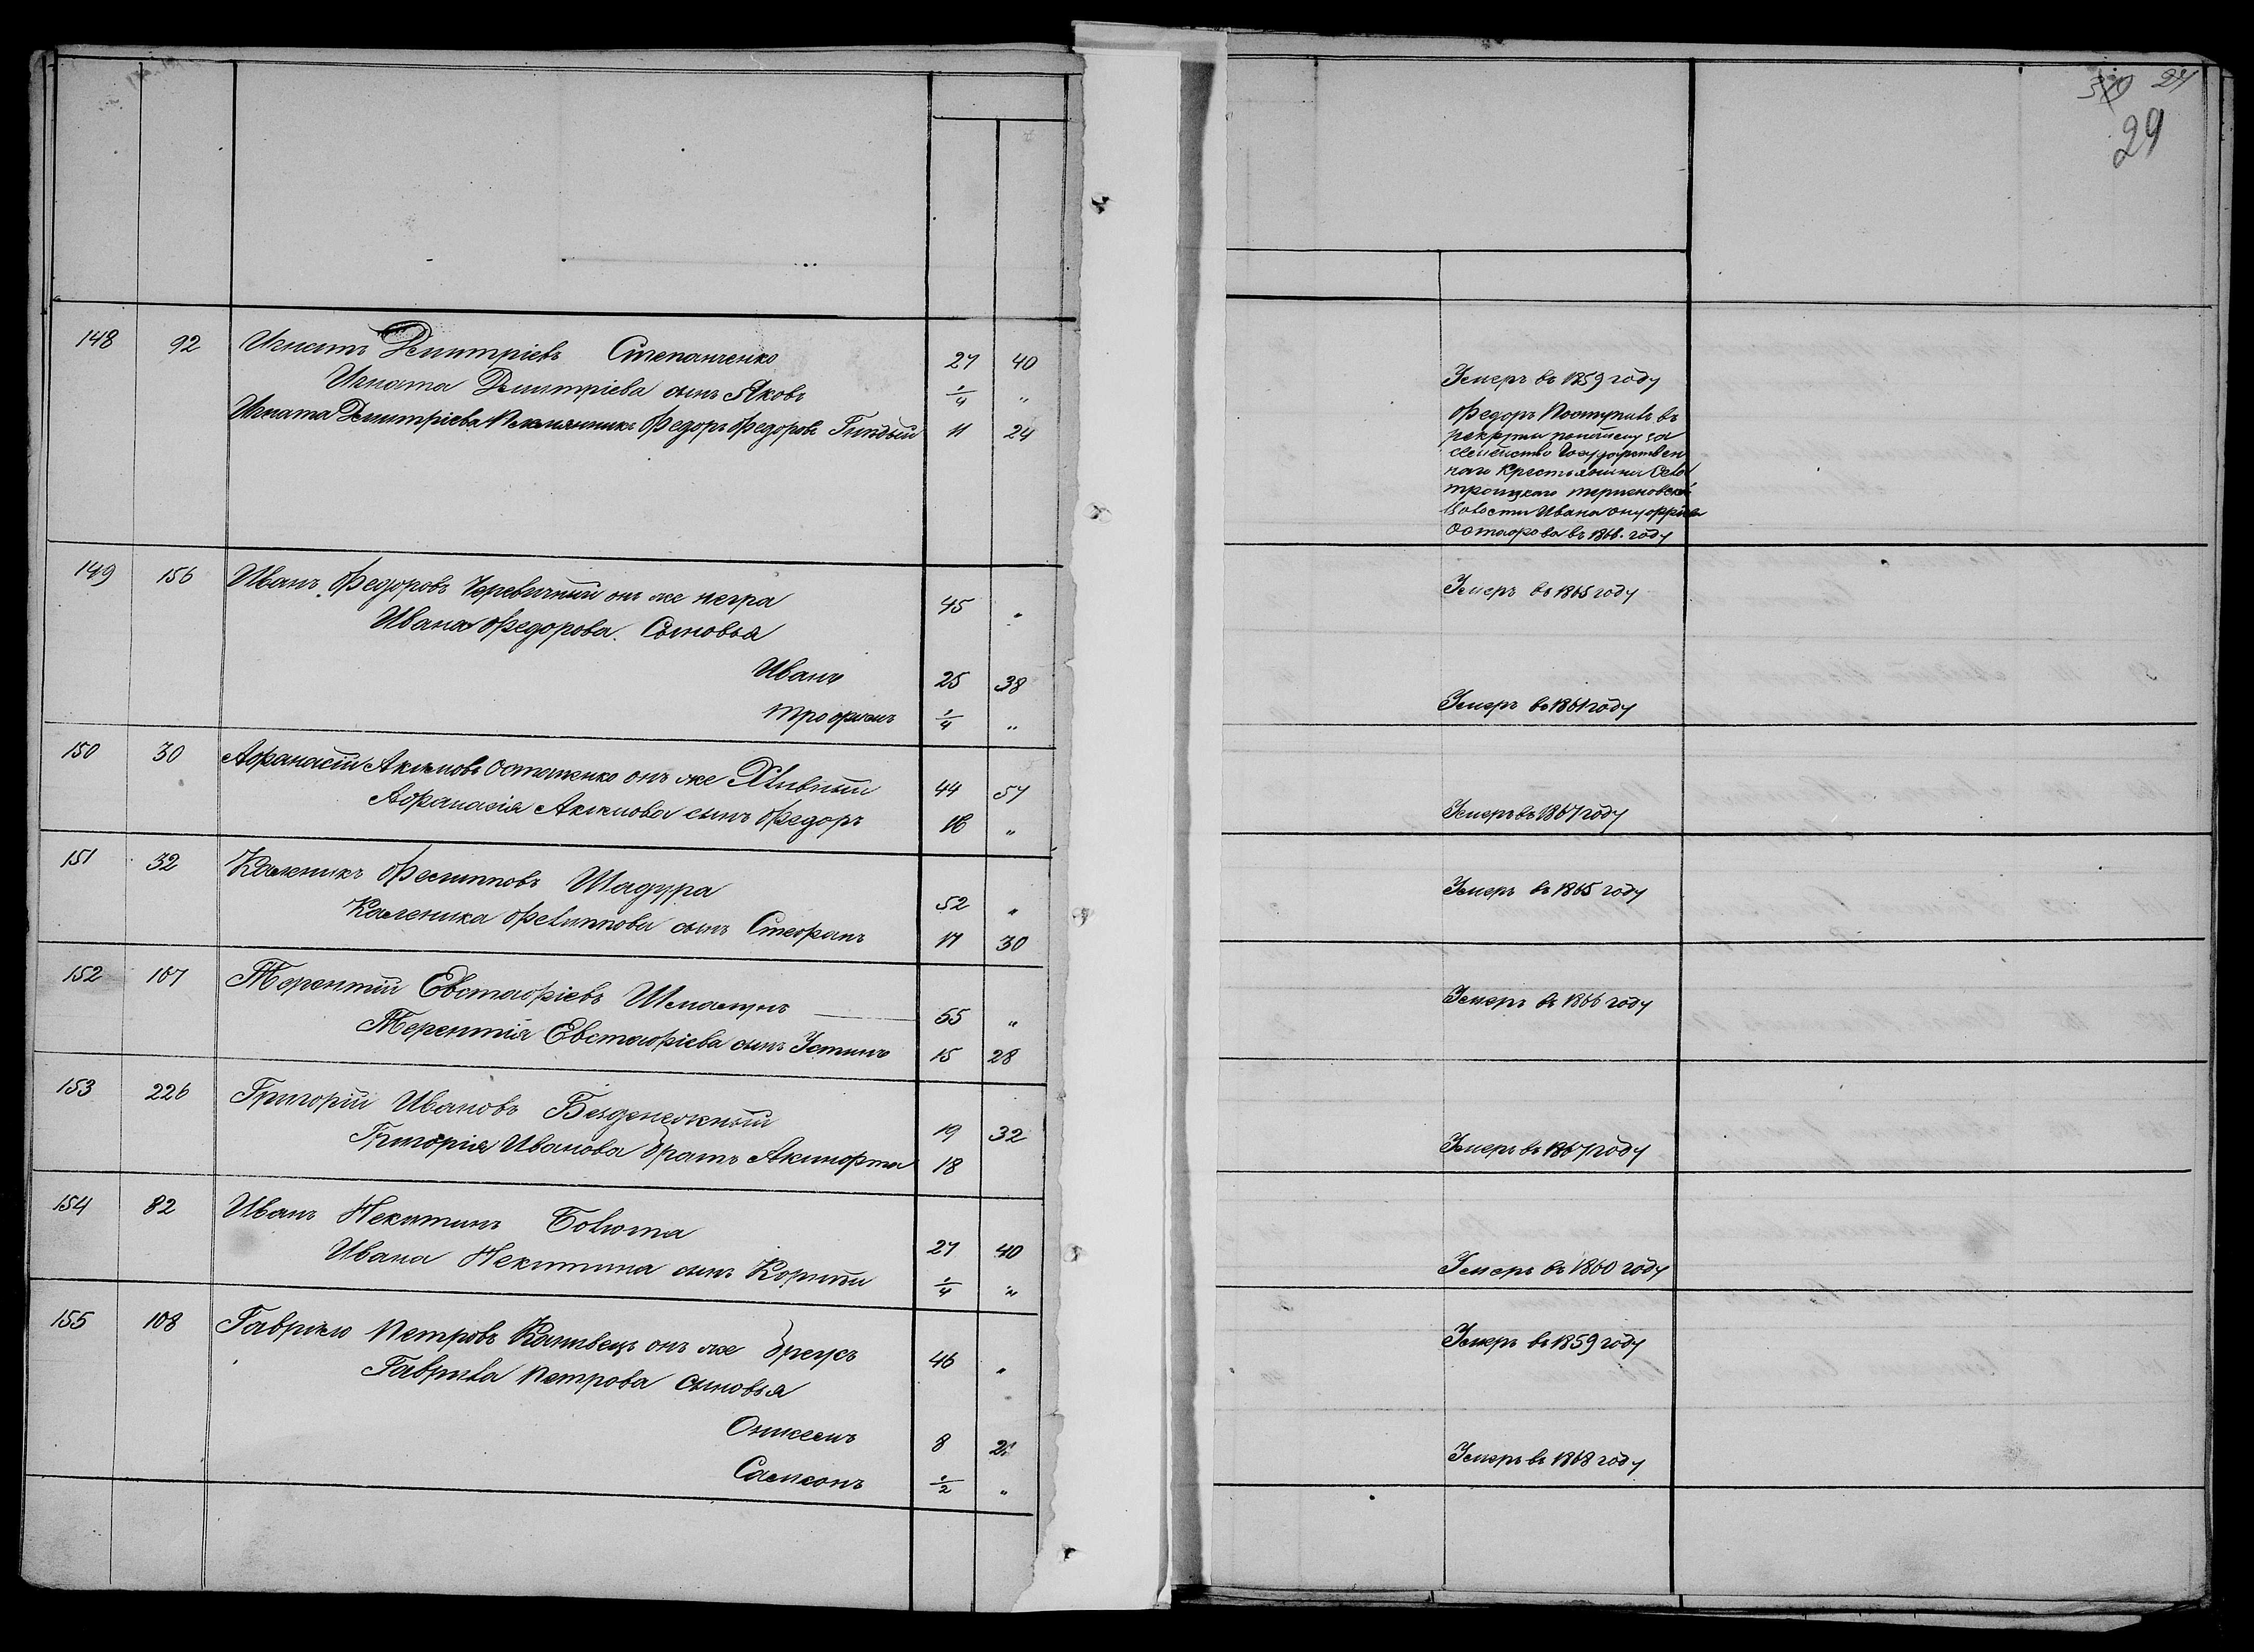 27
29
148 92 Игнатъ Дмитріевъ Степанченко 27 40
Игната Дмитріева сынъ Яковъ 1/4 " Умеръ въ 1859 году
Игната Дмитріева Племянникъ Федоръ Федоровъ Гнидый 11 24 Федоръ Поступилъ въ
рекруты
семейство Государствен
наго Крестьянина Села
троицкаго терпеновской
Волости Ивана онуфріева
Остафрова въ 1866. году
149 156 Иванъ Федоровъ Черевичный онъ же негра 45 " Умеръ въ 1865 году
Ивана Федорова Сыновья
Иванъ 25 38
трофимъ 1/4 " Умеръ въ 1861 году
150 30 Афанасій Акимовъ Остапенко онъ же Хливный 44 57
Афанасія Акимова сынъ Федоръ 16 " Умеръ въ 1867 году
151 32 Каленикъ Филипповъ Шадура 52 " Умеръ въ 1865 году
Каленика Филиппова сынъ Стефанъ 17 30
152 107 Терентій Евстафіевъ Шмалунъ 55 " Умеръ въ 1866 году
Терентія Евстафіева сынъ Устинъ 15 28
153 226 Григорій Ивановъ Безденежный 19 32
Григорія Иванова братъ Акинфта 18 Умеръ въ 1867 году
154 82 Иванъ Некитинъ Болюта 27 40
Ивана Некитина сынъ Корнѣй 1/4 " Умеръ въ 1860 году
155 108 Гаврило Петровъ Каливецъ онъ же Бреусъ 46 " Умеръ въ 1859 году
Гаврила Петрова сыновья
Онисемъ 8 21
Самсонъ 1/2 " Умеръ въ 1868 году